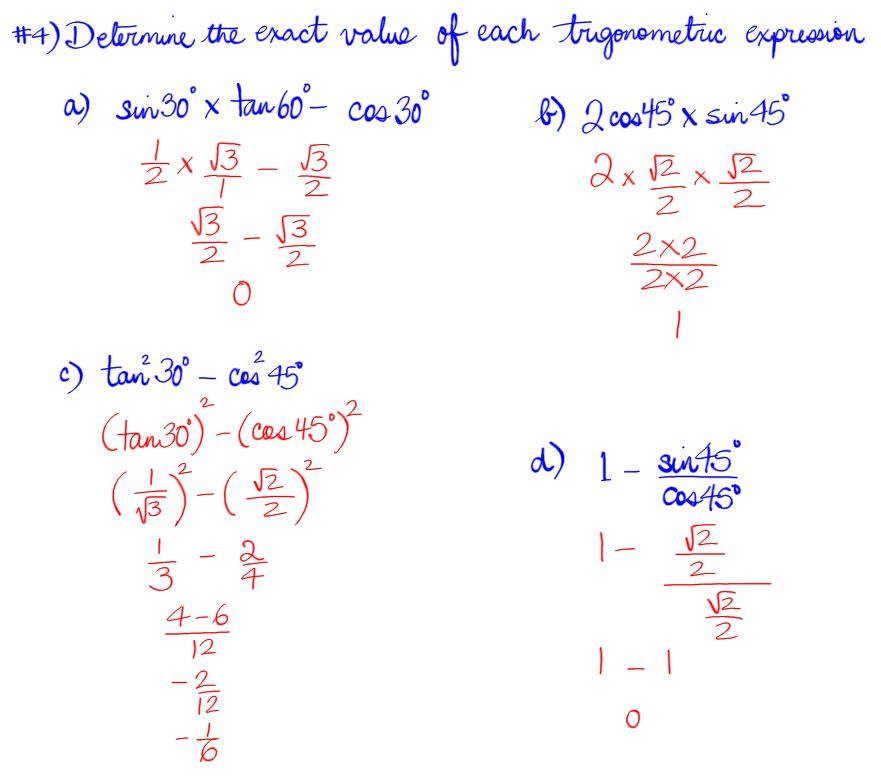 #4) Determine the exact value of each trigonometric expression
a) sin30° × tan60° – cos30°
1/2 × √3/1 – √3/2
√3/2 – √3/2
0
b) 2cos45° × sin45°
2 × √2/2 × √2/2
2×2/2×2
1
c) tan²30° – cos²45°
(tan30°)² – (cos45°)²
(1/√3)² – (√2/2)²
1/3 – 2/4
4–6/12
–2/12
–1/6
d) 1 – sin45°/cos45°
1 – √2/2/√2/2
1 – 1
0